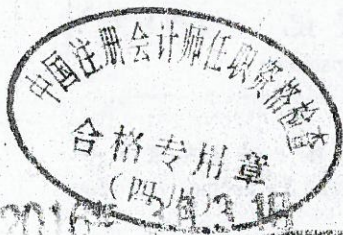 中国注册会计师任职资格检查
合格专用章
(四川)
2016